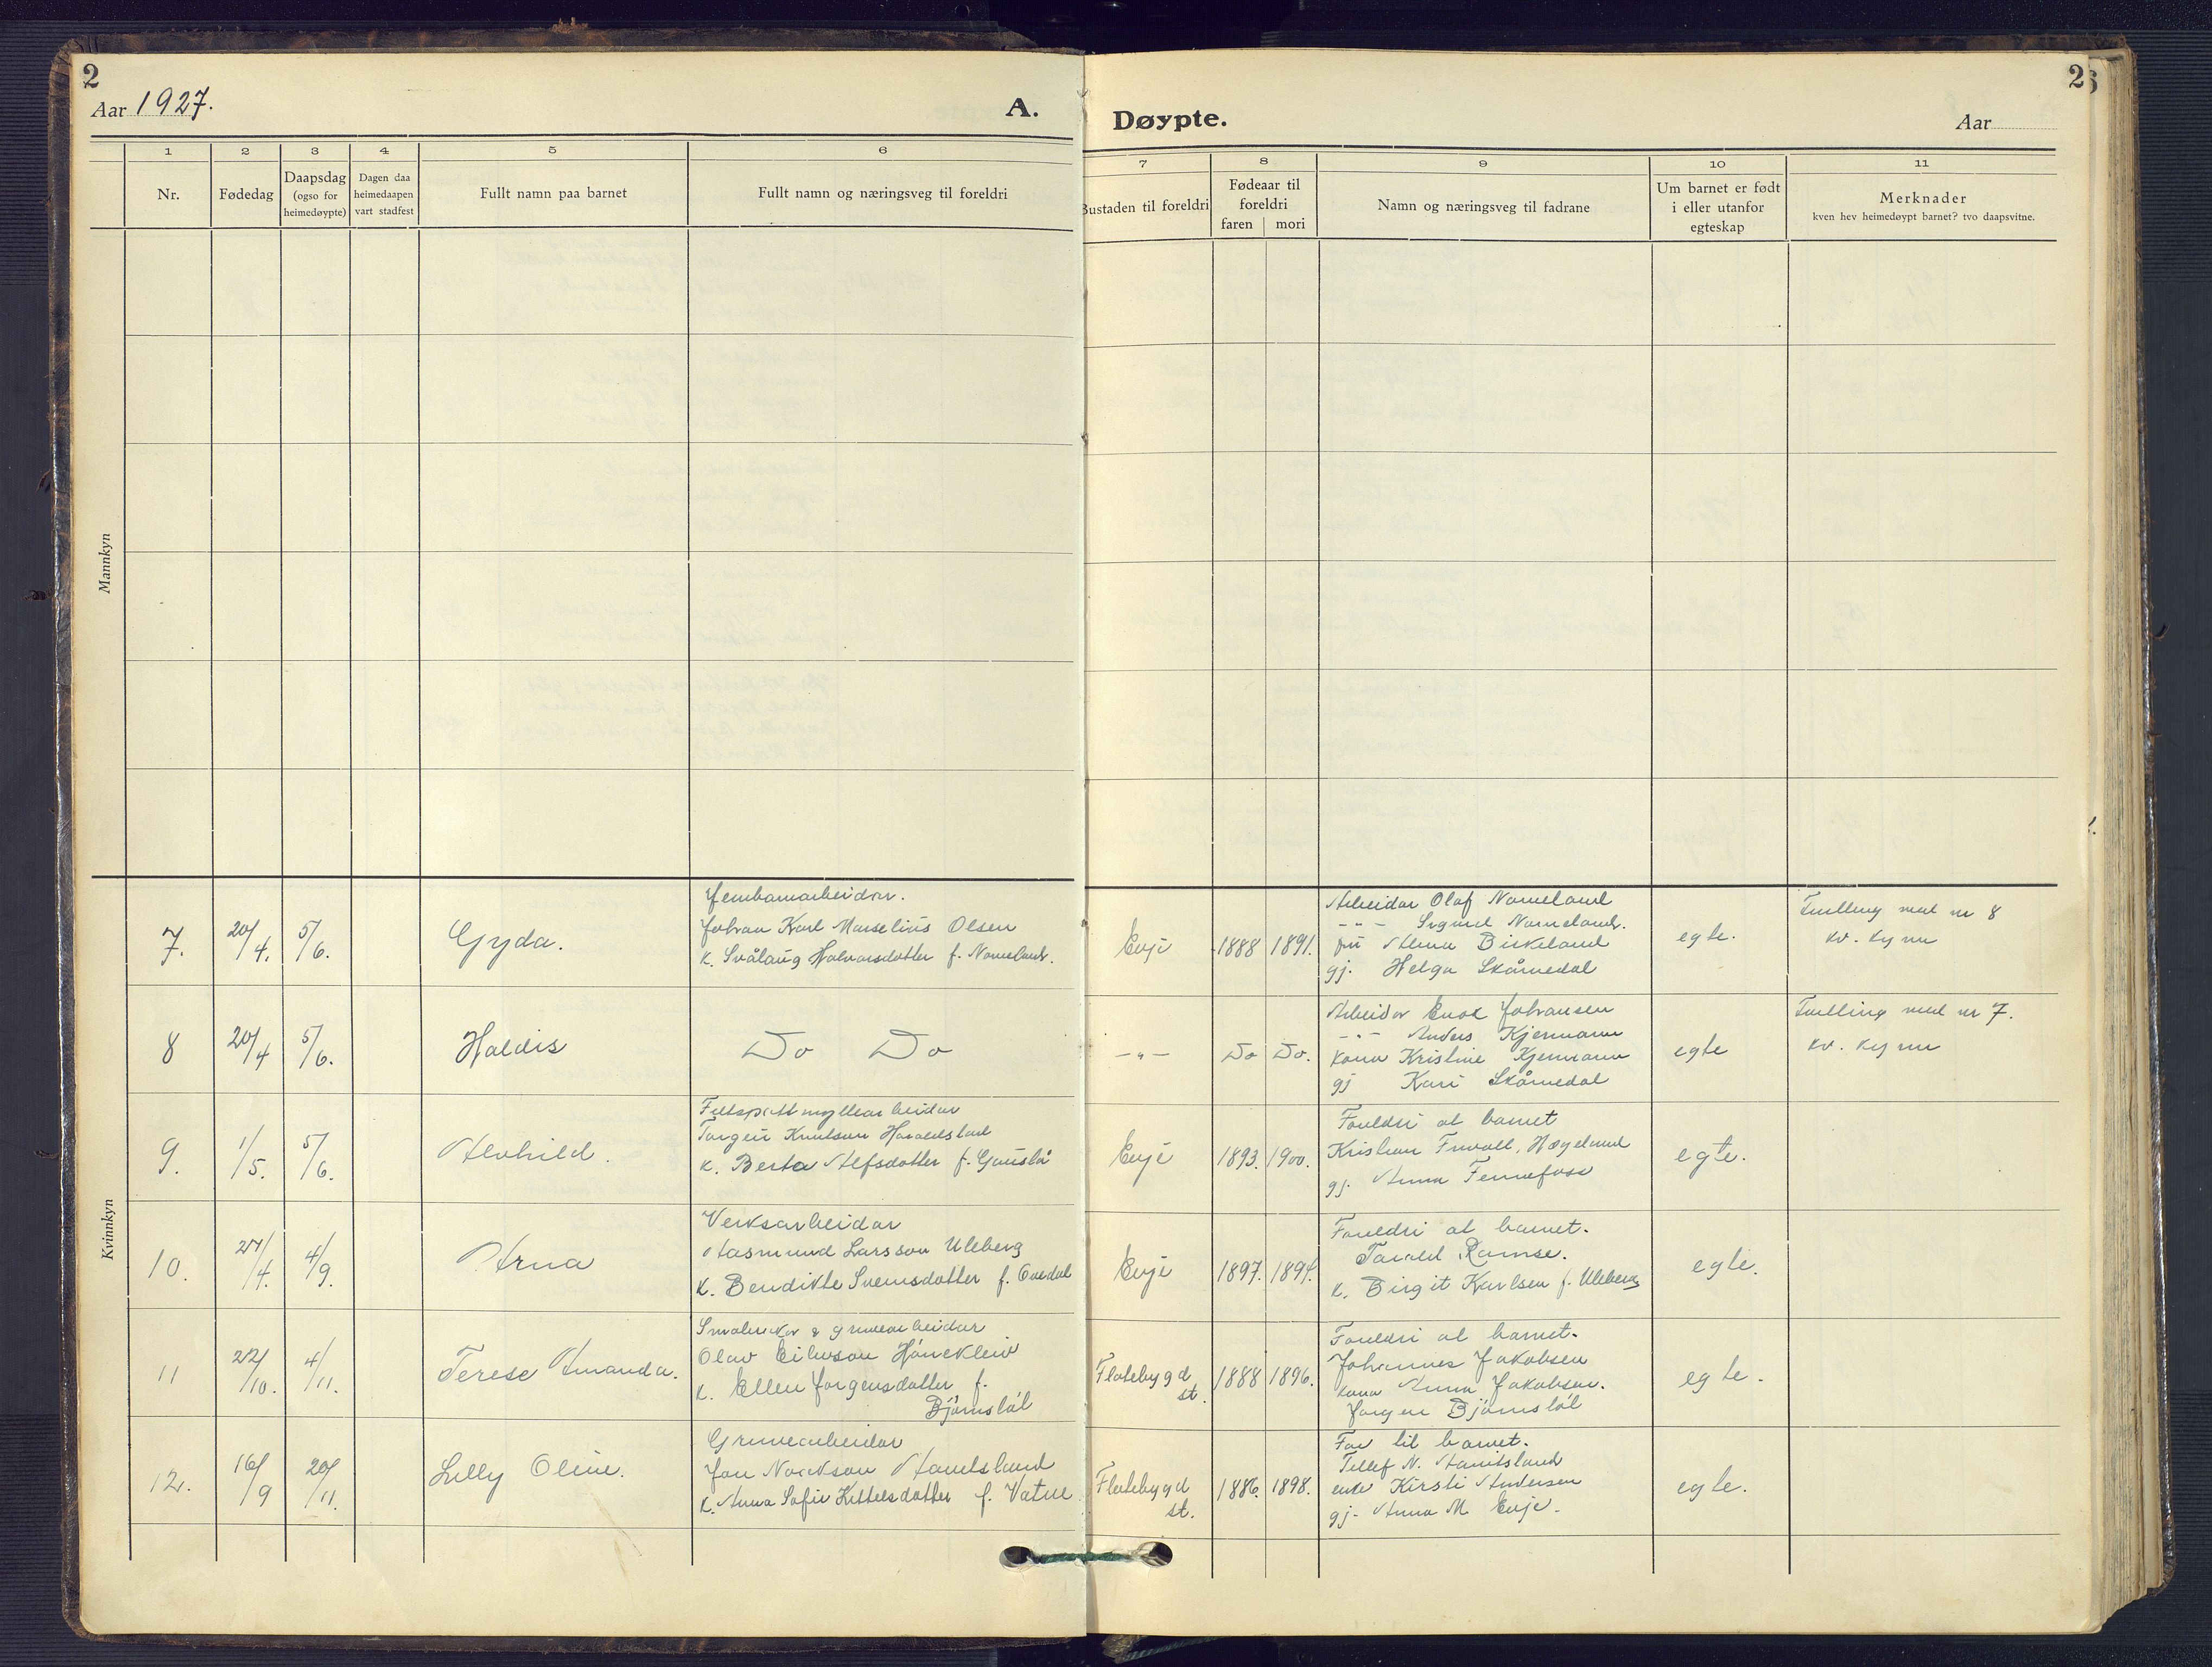 2
Aar 1927.
A.
Døypte.
Aar
2
1
2
3
4
5
6
7
8
9
10
11
Nr.
Fødedag
Daapsdag
(ogso for
heimedøypte)
Dagen daa
heimedaapen
vart stadfest
Fullt namn paa barnet
Fullt namn og næringsveg til foreldri
Bustaden til foreldri
Fødeaar til
foreldri
faren
mori
Namn og næringsveg til fadrane
Um barnet er født
i eller utanfor
egteskap
Merknader
kven hev heimedøypt barnet? tvo daapsvitne.
Mannkyn
Kvinnkyn
7. 20/4. 5/6. Gyda.
Jernbanearbeidar.
Johan Karl Marselius Olsen
k. Svålaug Halvorsdotter f. Nomeland.
Evje 1888 1891.
Arbeidar Olaf Nomeland
-"- Sigurd Nomeland.
Alma Birkeland
gj. Helga Skåmedal
egte.
Tvilling med nr 8
kv. kynn
8 20/4 5/6. Haldis
Do Do
-"- Do Do.
Arbeidar Enok Johansen
-"- Anders Kjermann
kona Kristine Kjermann
gj Kari Skåmedal
egte
Tvilling med nr 7.
kv. kynn
9. 1/5. 5/6. Alvhild.
Feltspatt myllearbeidar
Torgeir Knutson Haraldstad
k. Berta Alfsdotter f. Gauslå
Evje 1893. 1900.
Foreldri at barnet
Kristian Hægeland
gj. Anna Fennefoss
egte.
10. 27/4. 4/9. Arna
Verksarbeidar
Aasmund Larsson Uleberg
k. Bendikte Sveinsdotter f.
Evje 1897. 1894.
Foreldri at barnet.
Tarald Ramse.
k. Birgit Karlsen f. Uleberg
egte.
11 22/10. 4/11. Terese Amanda.
Småbrukar & gruvearbeidar
Olav Eilivson Høneklein
k. Ellen Jørgensdotter f.
Bjørnstøl
Flatebygd
st.
1888 1896.
Foreldri at barnet.
Johannes Jakobsen
kona Anna Jakobsen.
Jørgen Bjørnstøl
egte.
12. 16/9 20/11. Lilly Oline.
Gruvearbeidar
Jon Hautsland
k. Anna Sofie Kittelsdotter f. Vatne
Flatebygd
st.
1886. 1898.
Far til barnet.
Tellef N. Hautsland
enke Kirsti Andersen
gj. Anna M. Evje.
egte.